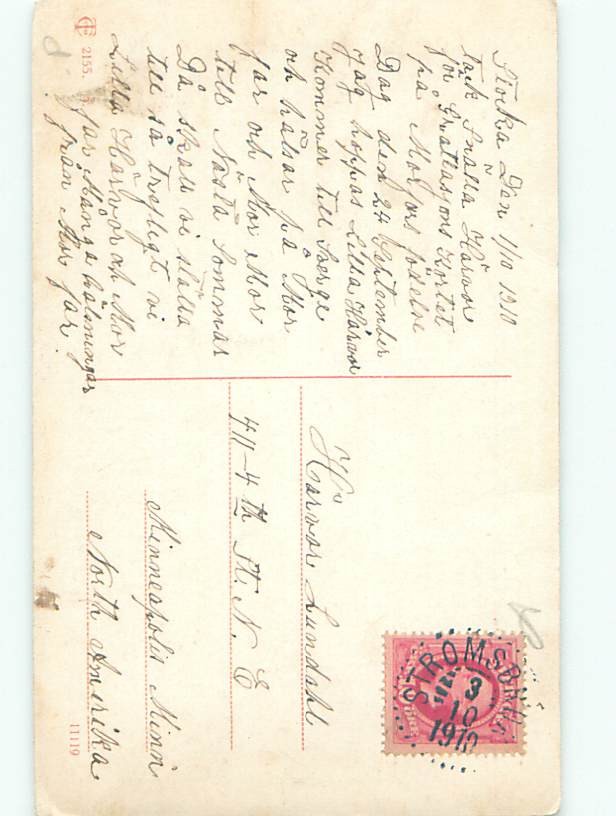 Stocka Den 1/10 1910
tack Snälla Hårvor
för Gratlasjons Kortet
på Morfors födelse
Dag den 24 September
jag hoppas Lilla Hårvor
Kommer till Sverge
och hälsar på Mor
far och Mor Mor
till Nästa Sommar
Då skall vi ställa
till så trefligt vi
Lilla Hårvor och Mor
far Många hälsningar
från Mor far
2155.
Hårvor Lundahl
411-4th St. N. E
Minneapolis Minn
North Amerika
11119
STRÖMSBRUK
3
10
1910